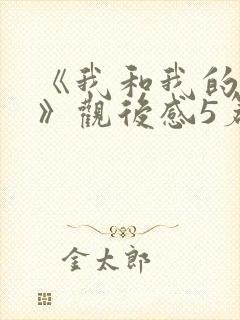 《我和我的
》觀後感5
金太郎